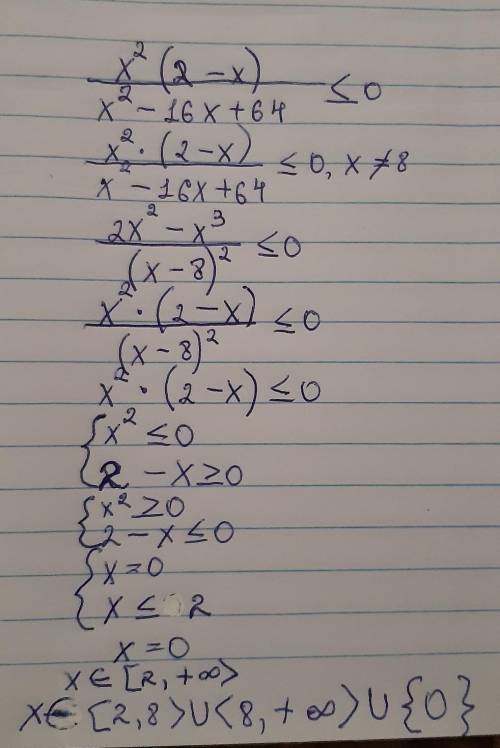 x² (2 - x) / x² - 16x + 64 ≤ 0
x² · (2 - x) / x² - 16x + 64 ≤ 0, x ≠ 8
2x² - x³ / (x - 8)² ≤ 0
x² · (2 - x) / (x - 8)² ≤ 0
x² · (2 - x) ≤ 0
{ x² ≤ 0
2 - x ≥ 0
{ x² ≥ 0
2 - x ≤ 0
{ x = 0
x ≤ 2
x = 0
x ∈ [2, +∞>
x ∈ [2, 8> U <8, +∞> U {0}